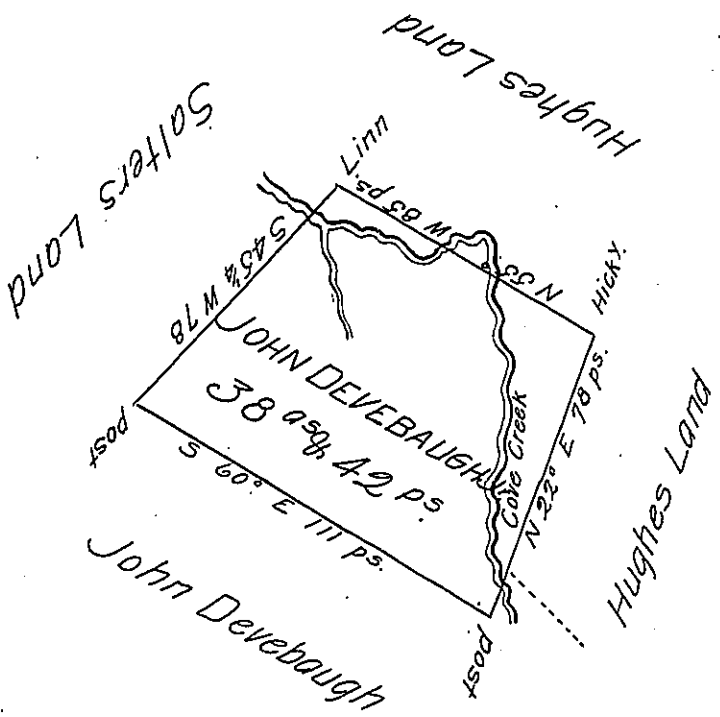 Hughes Land
Salters Land
Linn
N 53° W 83 ps.
Hicky.
S 45¼ W 78
JOHN DEVEBAUGH
38 as & 42 ps.
Cove Creek
N 22° E 78 ps.
post
S 60° E 111 ps.
Hughes Land
John Devebaugh
post